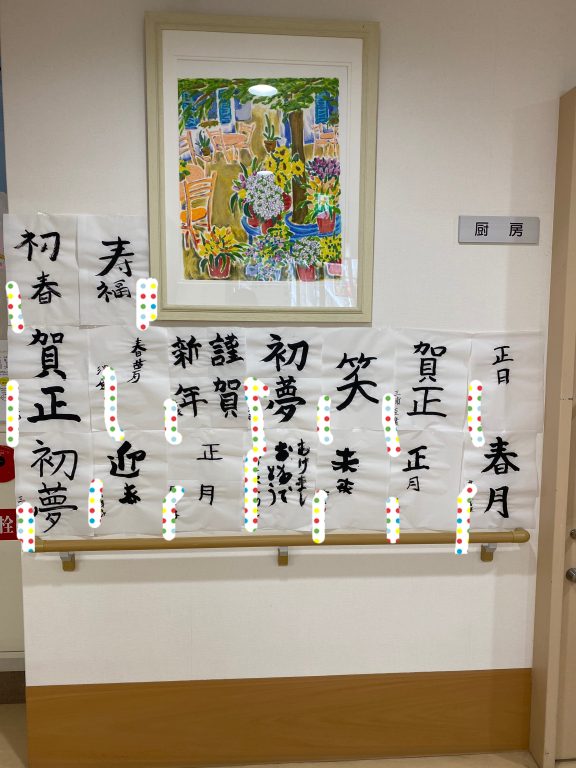 初春
寿福
厨房
賀正
春夢
謹賀
新年
初夢
笑
賀正
正日
初夢
迎春
正月
あけまし
おめで
とう
正月
春月
栓